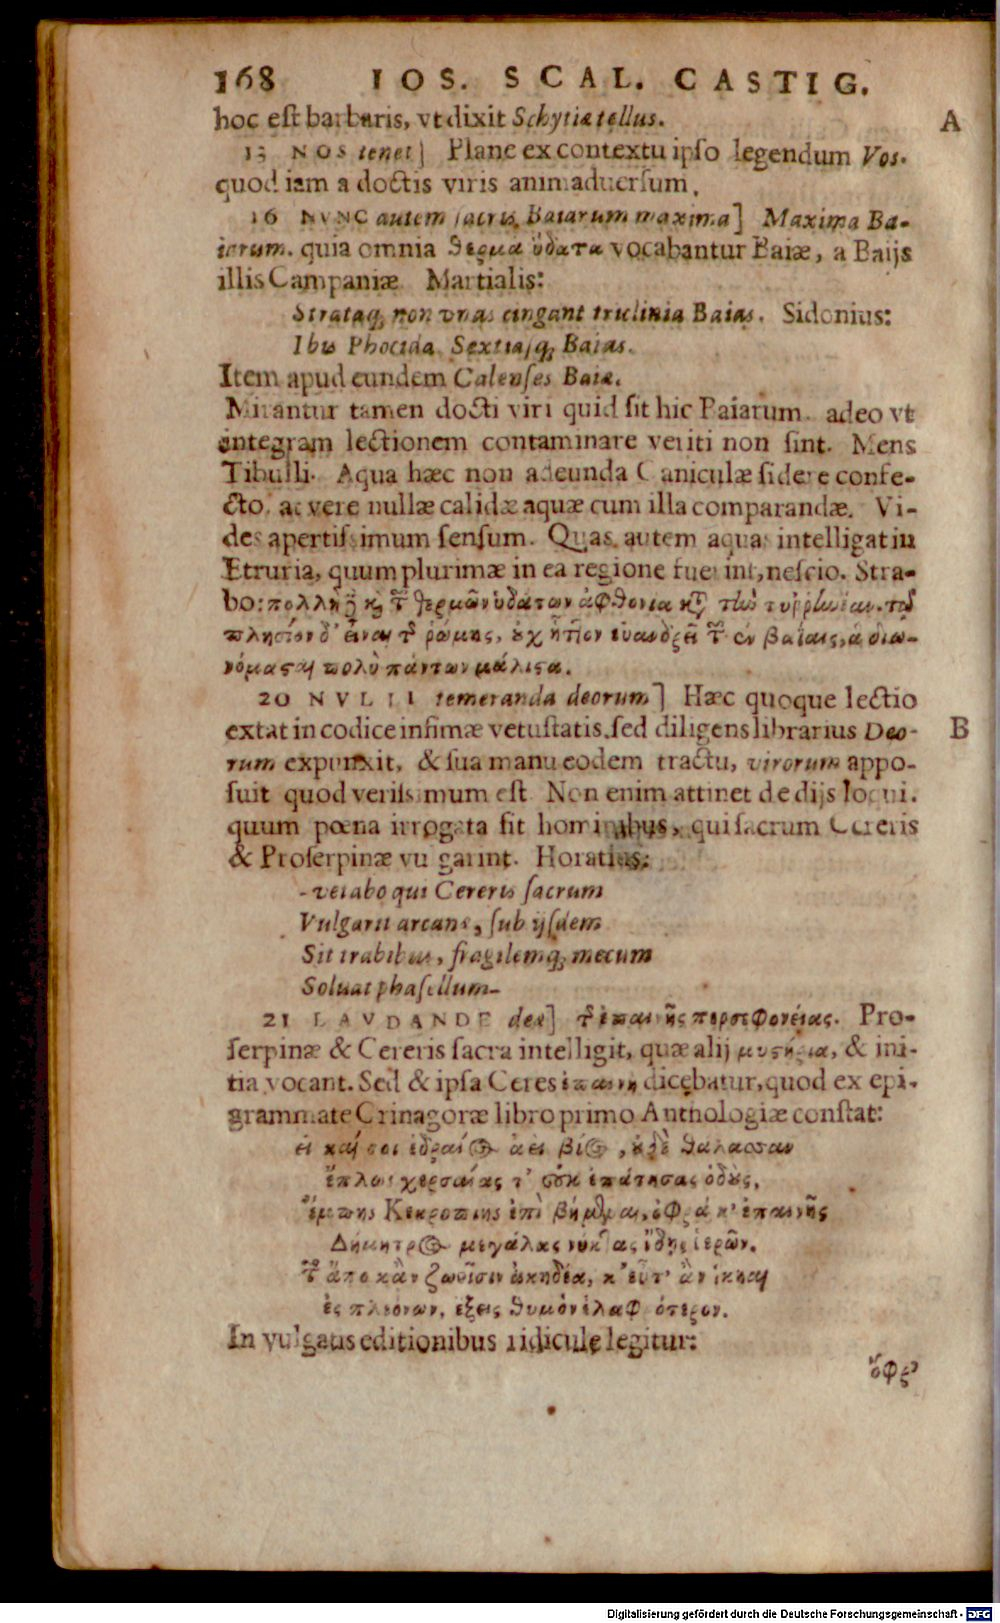 168 IOS. SCAL. CASTIG.
hoc est barbaris, vt dixit Schytia tellus. A
13 NOS tenet] Plane ex contextu ipso legendum Vos.
quod iam a doctis viris animaduersum.
16 NVNC autem sacris Baiarum maxima] Maxima Ba-
iarum. quia omnia θερμὰ ὕδατα vocabantur Baiæ, a Baijs
illis Campaniæ. Martialis:
Strataq; non vnas cingant triclinia Baias. Sidonius:
Ibis Phocida Sextiasq; Baias.
Item apud eundem Calenses Baiæ.
Mirantur tamen docti viri quid sit hic Baiarum. adeo vt
integram lectionem contaminare veriti non sint. Mens
Tibulli. Aqua hæc non adeunda Caniculæ sidere confe-
cto. at vere nullæ calidæ aquæ cum illa comparandæ. Vi-
des apertissimum sensum. Quas autem aquas intelligat in
Etruria, quum plurimæ in ea regione fuerint, nescio. Stra-
bo: πολλὴ ἢ κ τ θερμῶν ὑδάτων ἀφθονία κτ τὼ τυῤῥίωίαν. τῷ
πλησίον δ' εἶναι τ ῥώμης, οὐχ ἧτλον εὐανδρεῖ τ ἐν βαΐαις, ἃ διω-
νόμασται πολὺ πάντων μάλιστα.
20 NVLLI temeranda deorum] Hæc quoque lectio
extat in codice infimæ vetustatis. sed diligens librarius Deo- B
rum expunxit, & sua manu eodem tractu, virorum appo-
suit quod verissimum est. Non enim attinet de dijs loqui.
quum pœna irrogata sit hominibus, qui sacrum Cereris
& Proserpinæ vulgarint. Horatius:
-vetabo qui Cereris sacrum
Vulgarit arcanæ, sub ijsdem
Sit trabibus, fragilemq; mecum
Soluat phasellum-
21 LAVDANDÆ deæ] τ ἐπαινῆς περσεφονείας. Pro-
serpinæ & Cereris sacra intelligit, quæ alij μυστήρια, & ini-
tia vocant. Sed & ipsa Ceres ἐπαινὴ dicebatur, quod ex epi-
grammate Crinagoræ libro primo Anthologiæ constat:
εἰ καί σοι ἑδραῖος ἀεὶ βίος, οὐδὲ θάλασσαν
ἔπλως χερσαίας τ' οὐκ ἐπάτησας ὁδούς,
ἔμπης Κεκροπίης ἐπὶ βήμεναι, ὄφρά κ' ἐπαινῆς
Δήμητρος μεγάλας νύκτας ἴδῃς ἱερῶν.
τ ἄπο κἂν ζωοῖσιν ἀκηδέα, κ' εὖτ' ἂν ἵκηαι
ἐς πλεόνων, ἕξεις θυμὸν ἐλαφρότερον.
In vulgatis editionibus ridicule legitur:
ὄφρ'
Digitalisierung gefördert durch die Deutsche Forschungsgemeinschaft - DFG